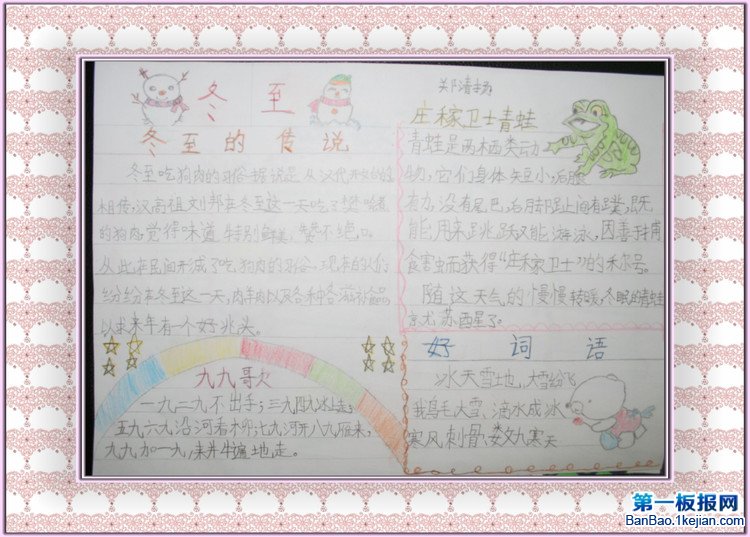 冬 至
冬至的传说
冬至吃狗肉的习俗据说是从汉代开始的
相传，汉高祖刘邦在冬至这一天吃了樊哙煮
的狗肉觉得味道特别鲜美，赞不绝口。
从此在民间形成了吃狗肉的习俗，现在的人们
纷纷在冬至这一天，肉羊肉以及各种各滋补食品
以求来年有一个好兆头。
九九歌
一九二九不出手；三九四九冰上走；
五九六九沿河看柳；七九河开八九雁来，
九九加一九，耕牛遍地走。
郑清扬
庄稼卫士青蛙
青蛙是两栖类动
物，它们身体短小，后腿
有力，没有尾巴，后脚趾间有蹼，既
能用来跳跃又能游泳，因善于捕
食害虫而获得“庄稼卫士”的称号。
随这天气的慢慢转暖，冬眠的青蛙
就苏西星了。
好 词 语
冰天雪地，大雪纷飞
鹅毛大雪、滴水成冰
寒风刺骨、数九寒天
第一板报网
BanBao.1kejian.com